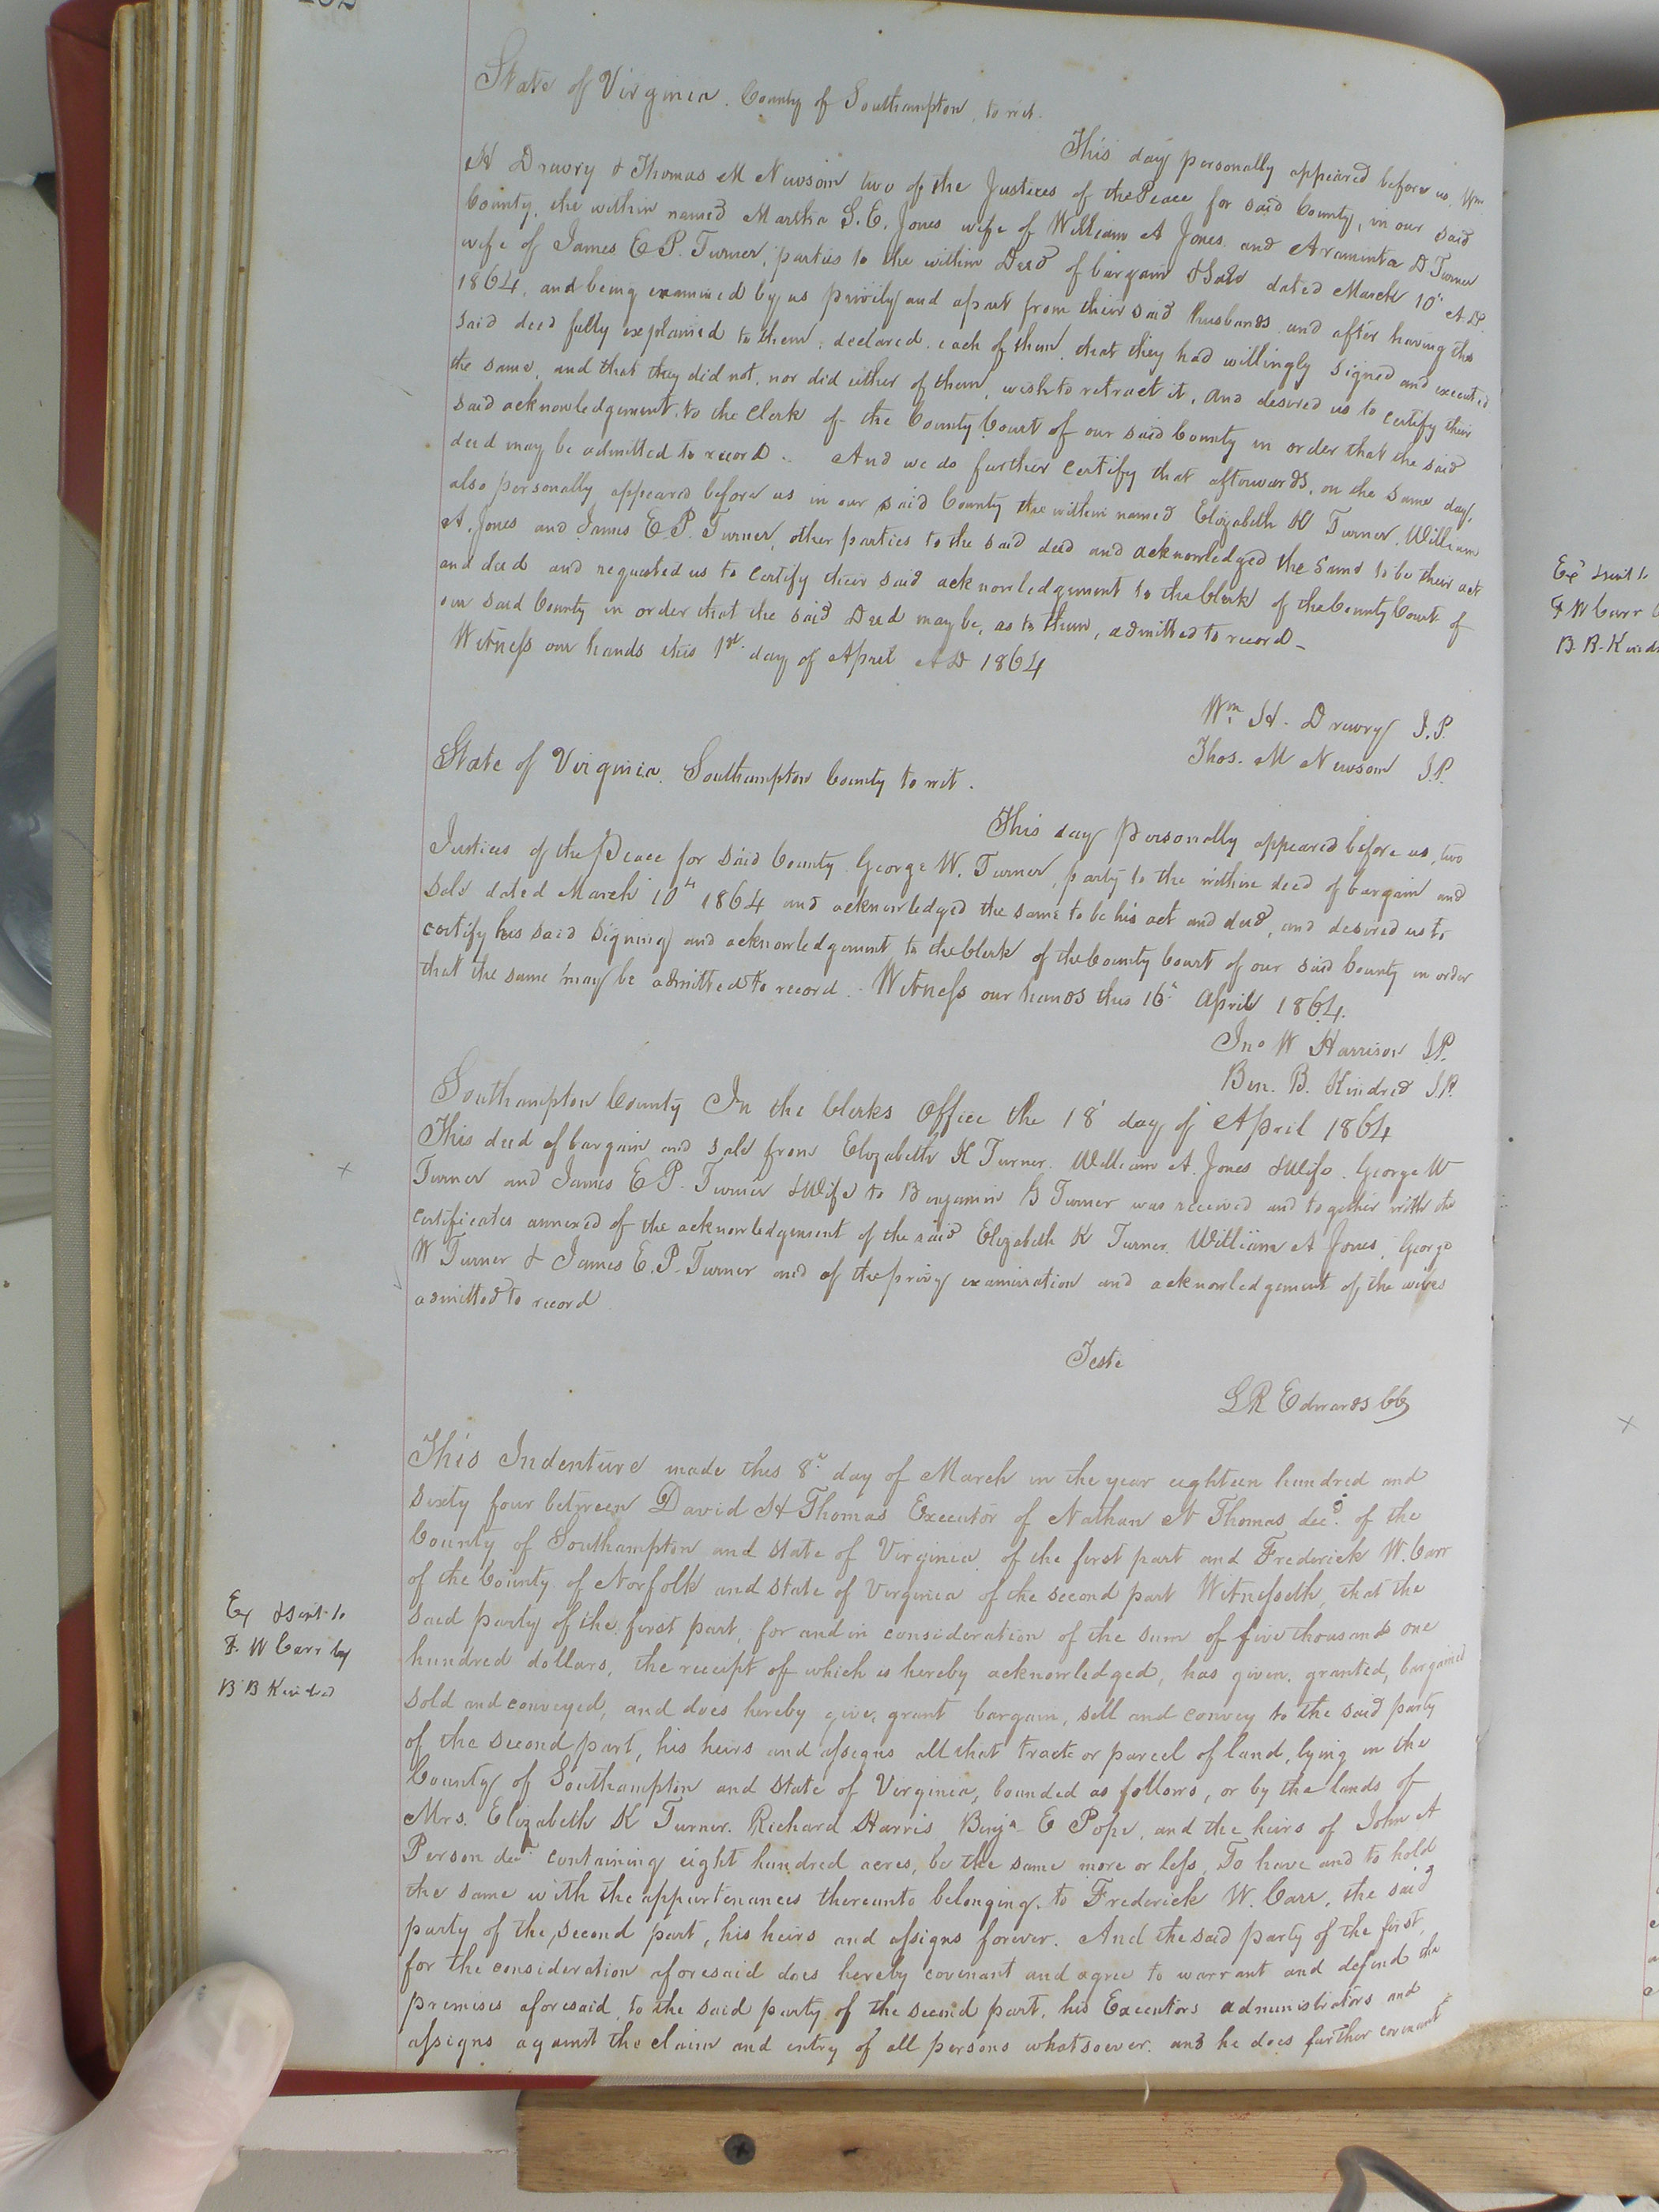 State of Virginia. County of Southampton, to wit.
This day personally appeared before us, Wm
H Drewry & Thomas M Newsom two of the Justices of the Peace for said County, in our said
County, the within named Martha S. E. Jones wife of William A Jones and Araminta D Turner
wife of James E P. Turner, parties to the within Deed of bargain & Sale dated March 10th A.D.
1864, and being examined by us privily and apart from their said husbands and after having the
said deed fully explained to them, declared, each of them, that they had willingly signed and executed
the same, and that they did not, nor did either of them, wish to retract it, and desired us to certify their
said acknowledgement, to the Clerk of the County Court of our said County in order that the said
deed may be admitted to record. And we do further certify that afterwards, on the same day,
also personally appeared before us in our said County the within named Elizabeth K Turner, William
A. Jones and James E. P. Turner, other parties to the said deed and acknowledged the same to be their act
and deed and requested us to certify their said acknowledgement to the Clerk of the County Court of
our said County in order that the said Deed may be, as to them, admitted to record -
Witness our hands this 1st day of April A D 1864
Wm H. Drewry J.P.
Thos. M Newsom J.P.
State of Virginia. Southampton County to wit.
This day personally appeared before us, two
Justices of the Peace for said County George W. Turner, party to the within deed of bargain and
Sale dated March 10th 1864 and acknowledged the same to be his act and deed, and desired us to
certify his said signing and acknowledgement to the Clerk of the County Court of our said County in order
that the same may be admitted to record. Witness our hands this 16" April 1864.
Jno W Harrison J.P.
Ben. B. Kindred J.P.
Southampton County In the Clerks Office the 18' day of April 1864
This deed of bargain and sale from Elizabeth K Turner. William A. Jones & Wife. George W
Turner and James E P. Turner & Wife to Benjamin G Turner was received and together with the
certificates annexed of the acknowledgement of the said Elizabeth K Turner. William A Jones, George
W Turner & James E. P. Turner and of the privy examination and acknowledgement of the wives
admitted to record
Teste
L R Edwards CC
This Indenture made this 8" day of March in the year eighteen hundred and
sixty four between David H Thomas Executor of Nathan N Thomas decd. of the
County of Southampton and state of Virginia of the first part and Frederick W. Carr
of the County of Norfolk and state of Virginia of the second part Witnesseth, that the
said party of the first part, for and in consideration of the sum of five thousand one
hundred dollars, the receipt of which is hereby acknowledged, has given, granted, bargained
sold and conveyed, and does hereby give, grant bargain, sell and convey to the said party
of the second part, his heirs and assigns all that tract or parcel of land, lying in the
County of Southampton and state of Virginia, bounded as follows, or by the lands of
Mrs. Elizabeth K Turner. Richard Harris Benja E Pope, and the heirs of John A
Person decd containing eight hundred acres, be the same more or less, To have and to hold
the same with the appurtenances thereunto belonging, to Frederick W. Carr, the said
party of the second part, his heirs and assigns forever. And the said party of the first,
for the consideration aforesaid does hereby covenant and agree to warrant and defend the
premises aforesaid to the said party of the second part, his Executors administrators and
assigns against the claim and entry of all persons whatsoever. and he does further covenant
Ex & sent to
F. W Carr by
B B Kindred
Ex & sent to
F W Carr
B. B. Kind